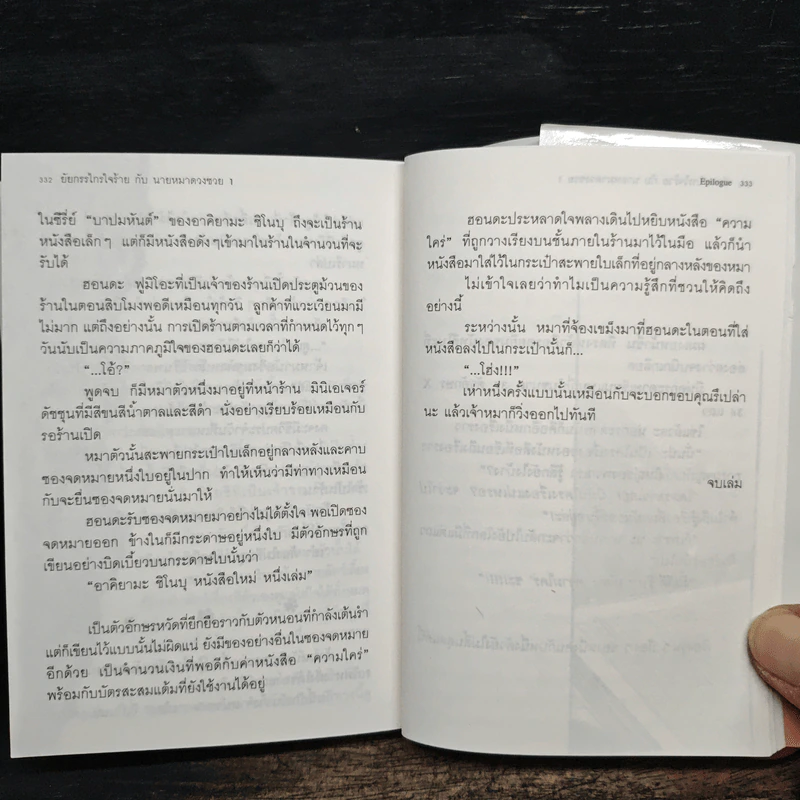 332 ยัยกรรไกรใจร้าย กับ นายหมาดวงซวย 1
ในซีรี่ย์ “บาปมหันต์” ของอาคิยามะ ชิโนบุ ถึงจะเป็นร้าน
หนังสือเล็กๆ แต่ก็มีหนังสือดังๆเข้ามาในร้านในจำนวนที่จะ
รับได้
ฮอนดะ ฟูมิโอะที่เป็นเจ้าของร้านเปิดประตูม้วนของ
ร้านในตอนสิบโมงพอดีเหมือนทุกวัน ลูกค้าที่แวะเวียนมามี
ไม่มาก แต่ถึงอย่างนั้น การเปิดร้านตามเวลาที่กำหนดไว้ทุกๆ
วันนับเป็นความภาคภูมิใจของฮอนดะเลยก็ว่าได้
“...โอ้?”
พูดจบ ก็มีหมาตัวหนึ่งมาอยู่ที่หน้าร้าน มินิเอเจอร์
ดัชชุนที่มีสีขนสีน้ำตาลและสีดำ นั่งอย่างเรียบร้อยเหมือนกับ
รอร้านเปิด
หมาตัวนั้นสะพายกระเป๋าใบเล็กอยู่กลางหลังและคาบ
ซองจดหมายหนึ่งใบอยู่ในปาก ทำให้เห็นว่ามีท่าทางเหมือน
กับจะยื่นซองจดหมายนั้นมาให้
ฮอนดะรับซองจดหมายมาอย่างไม่ได้ตั้งใจ พอเปิดซอง
จดหมายออก ข้างในก็มีกระดาษอยู่หนึ่งใบ มีตัวอักษรที่ถูก
เขียนอย่างบิดเบี้ยวบนกระดาษใบนั้นว่า
“อาคิยามะ ชิโนบุ หนังสือใหม่ หนึ่งเล่ม”
เป็นตัวอักษรหวัดที่ยึกยือราวกับตัวหนอนที่กำลังเต้นรำ
แต่ก็เขียนไว้แบบนั้นไม่ผิดแน่ ยังมีของอย่างอื่นในซองจดหมาย
อีกด้วย เป็นจำนวนเงินที่พอดีกับค่าหนังสือ “ความใคร่”
พร้อมกับบัตรสะสมแต้มที่ยังใช้งานได้อยู่
Epilogue 333
ฮอนดะประหลาดใจพลางเดินไปหยิบหนังสือ “ความ
ใคร่” ที่ถูกวางเรียงบนชั้นภายในร้านมาไว้ในมือ แล้วก็นำ
หนังสือมาใส่ไว้ในกระเป๋าสะพายใบเล็กที่อยู่กลางหลังของหมา
ไม่เข้าใจเลยว่าทำไมเป็นความรู้สึกที่ชวนให้คิดถึง
อย่างนี้
ระหว่างนั้น หมาที่จ้องเขม็งมาที่ฮอนดะในตอนที่ใส่
หนังสือลงไปในกระเป๋านั้นก็...
“...โฮ่ง!!!”
เห่าหนึ่งครั้งแบบนั้นเหมือนกับจะบอกขอบคุณรึเปล่า
นะ แล้วเจ้าหมาก็วิ่งออกไปทันที
จบเล่ม